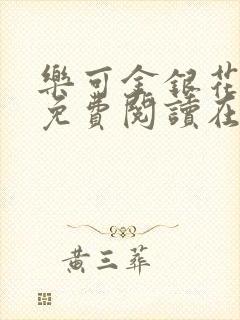 樂可金銀花
免費閱讀在
黃三葬